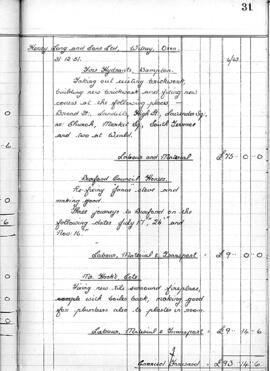 31
Henry Long and Sons Ltd, Witney, Oxon.
31.12.51.
Fire Hydrants, Bampton.
Taking out existing brickwork,
building new brickwork and fixing new
covers at the following places :-
Broad St, Landells, High St, Lavender Sq,
Church, Market Sq,
and two at Weald.
Labour and Material - £75 - 0 - 0
Council Houses.
Re-fixing door and
making good.
Three journeys to on the
following dates July 17, 24 and
Nov 16.
Labour, Material & Transport - £9 - 0 - 0
Mr.
Fixing new tile surround fireplace,
complete with boiler back, making good
for plumbers also to plaster in room.
Labour, Material & Transport - £9 - 14 - 6
Carried Forward - £93 - 14 - 6